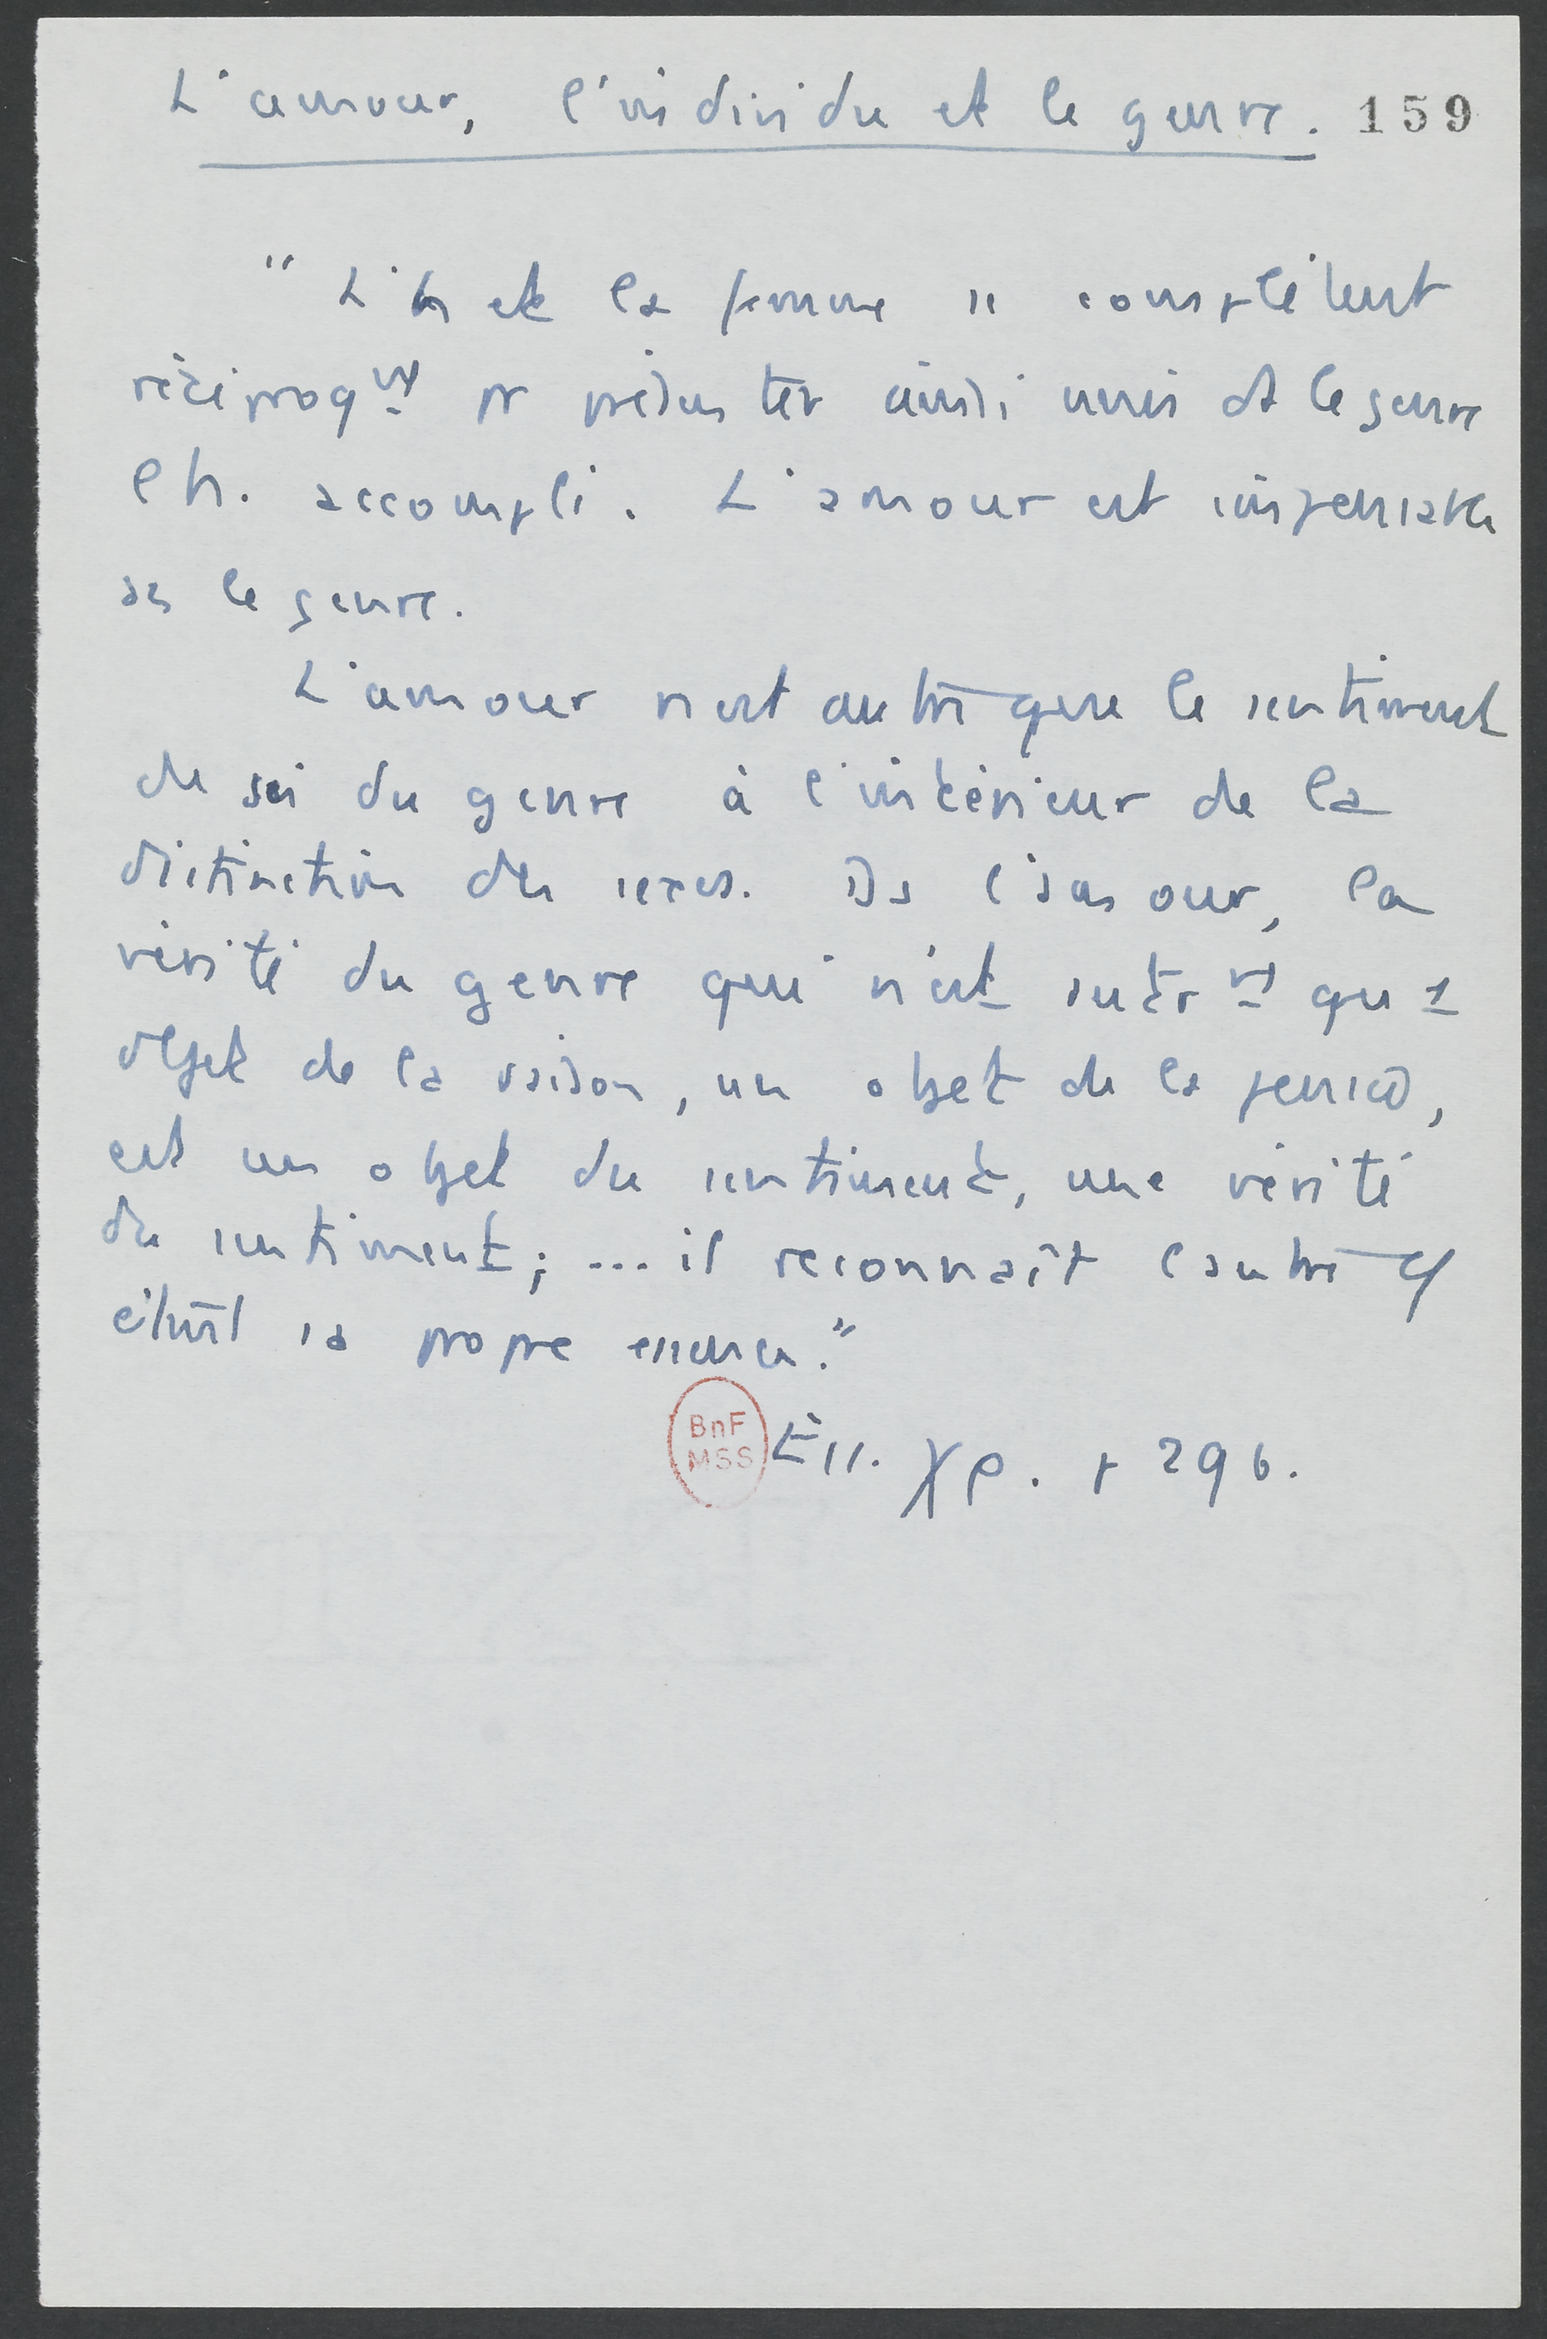 L'amour, l'individu et le genre. 159
" L'h et la femme se complètent
réciproqt pr présenter ainsi unis ds le genre
l'h. accompli. L'amour est impensable
ss le genre.
L'amour n'est autre que le sentiment
de soi du genre à l'intérieur de la
distinction des sexes. Ds l'amour, la
vérité du genre qui n'est autrt qu 1
objet de la raison, un objet de la pensée,
est un objet du sentiment, une vérité
du sentiment; ... il reconnaît l'autre
sa propre essence."
BnF
MSS
Ess. χρ. p 296.